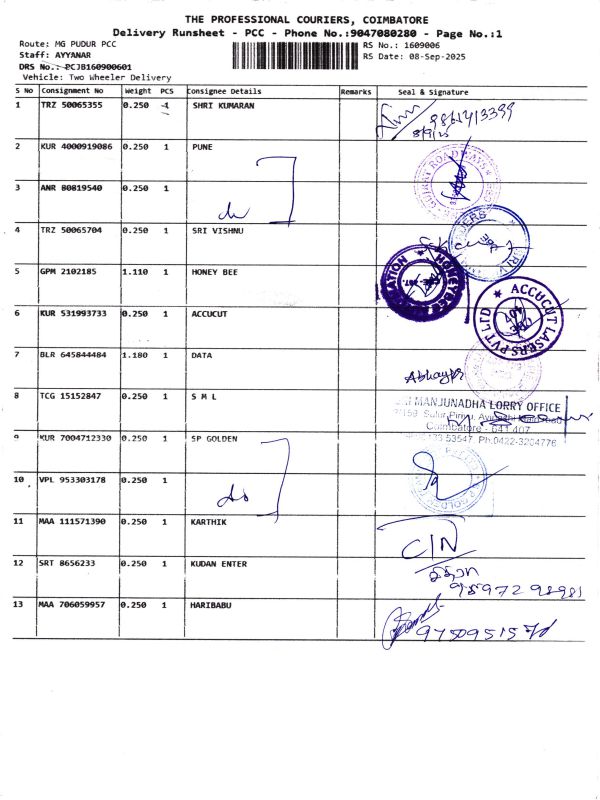 THE PROFESSIONAL COURIERS, COIMBATORE
Delivery Runsheet - PCC - Phone No.:9047080280 - Page No.:1
Route: MG PUDUR PCC
RS No.: 1609006
Staff: AYYANAR
RS Date: 08-Sep-2025
DRS No.: PCJB160900601
Vehicle: Two Wheeler Delivery
S No Consignment No Weight PCS Consignee Details Remarks Seal & Signature
1 TRZ 50065355 0.250 1 SHRI KUMARAN
8/9/25
2 KUR 4000919086 0.250 1 PUNE
3 ANR 80819540 0.250 1
4 TRZ 50065704 0.250 1 SRI VISHNU
5 GPM 2102185 1.110 1 HONEY BEE
6 KUR 531993733 0.250 1 ACCUCUT
ACCUCUT LASERS PVT LTD
7 BLR 645844484 1.180 1 DATA
8 TCG 15152847 0.250 1 S M L
MANJUNADHA LORRY OFFICE
Coimbatore - 641 407
53547 Ph:0422-3204776
9 KUR 7004712330 0.250 1 SP GOLDEN
10 VPL 953303178 0.250 1
11 MAA 111571390 0.250 1 KARTHIK
C/N
12 SRT 8656233 0.250 1 KUDAN ENTER
13 MAA 706059957 0.250 1 HARIBABU